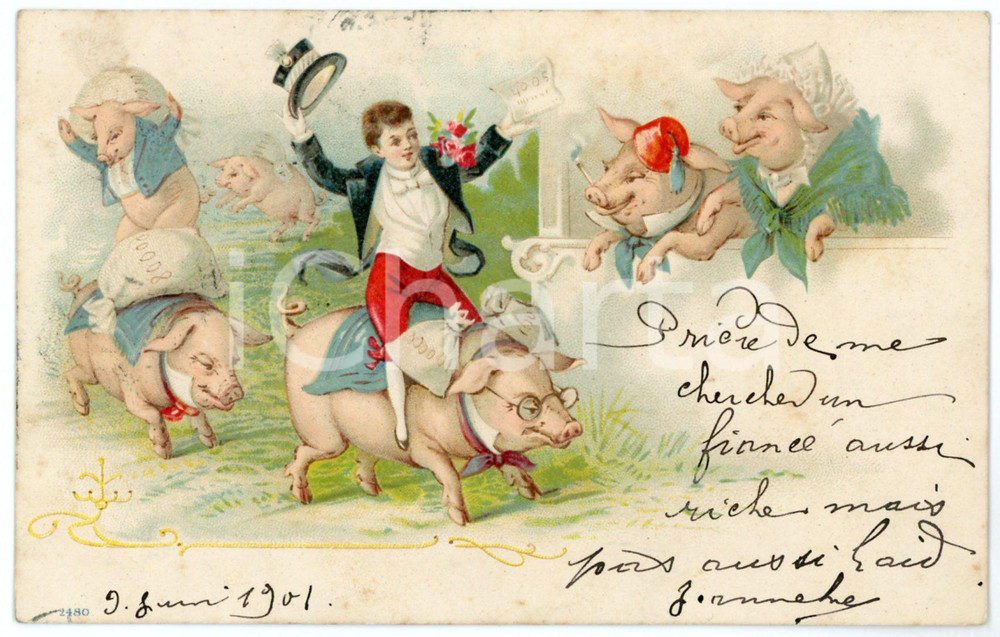 Prière de me
chercher un
fiancé aussi
riche mais
pas aussi laid
9. Juin 1901.
2480
iCharta